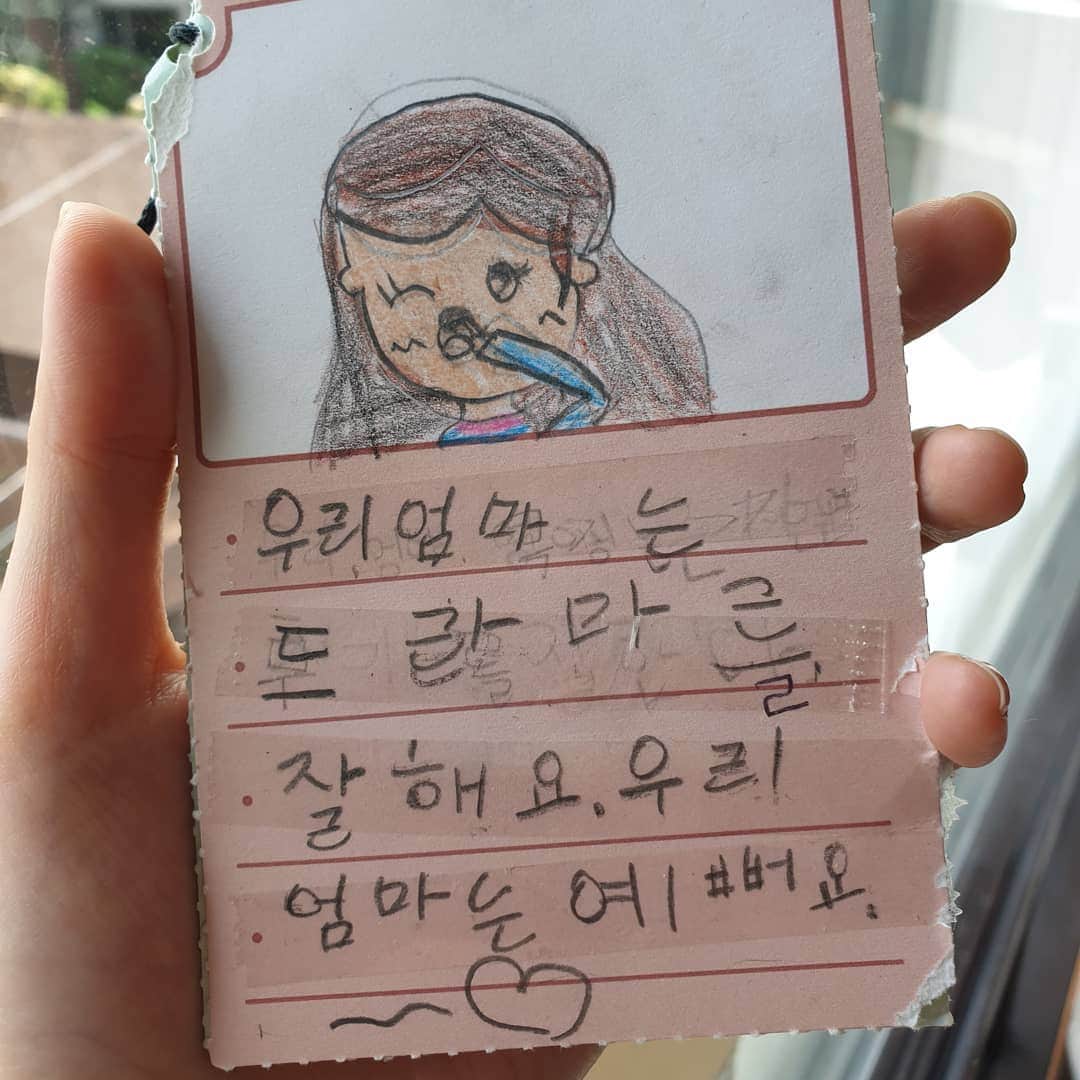 우리 엄마 는
트 람 마 를
잘 해 요. 우리
엄마는 예뻐요.